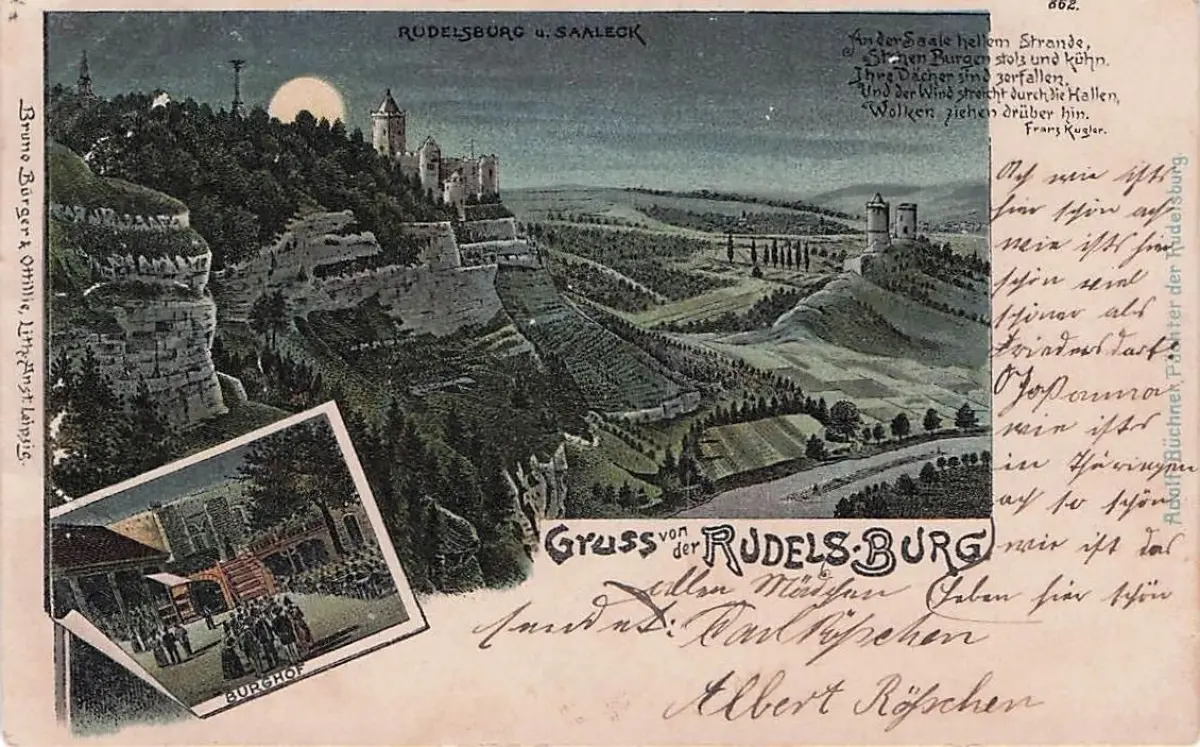 862.
RUDELSBURG u. SAALECK
An der Saale hellem Strande,
Stehen Burgen stolz und kühn.
Ihre Dächer sind zerfallen,
Und der Wind streicht durch die Hallen,
Wolken ziehen drüber hin.
Franz Kugler.
Bruno Bürger & Ottillie, Lith. Anst. Leipzig.
Adolf Büchner, Pächter der Rudelsburg.
Ach wie ists
hier schön ach
wie ists hier
schön viel
schöner als
Friedersdorf
O Johanna
wie ists
in Thüringen
ach so schön
wie ist das
Leben hier schön
Gruss von der RUDELS-BURG
allen Mädchen
sendet: Carl Röschen
Albert Röschen
BURGHOF